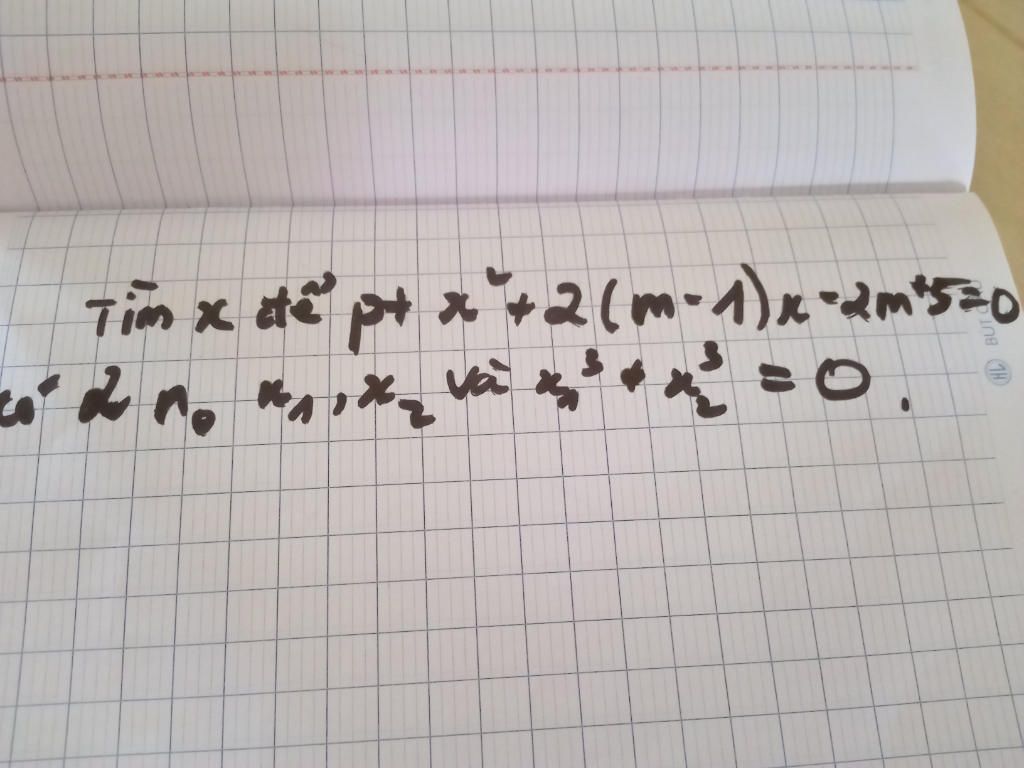 Tìm x để pt x² + 2(m-1)x - 2m+5=0
có 2 n₀ x₁, x₂ và x₁³ + x₂³ = 0.